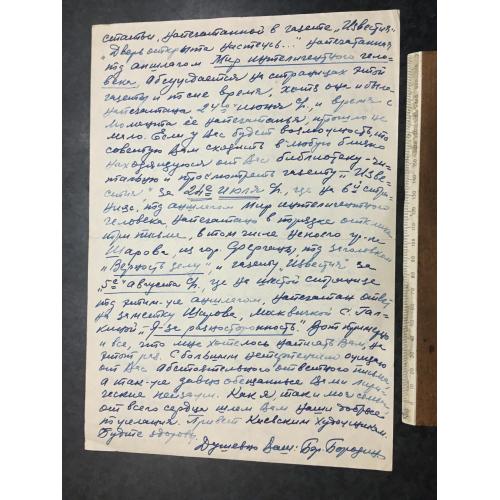 статьи, напечатанной в газете „Известия“
„Дверь открыта настежь...“ напечатанная
под аншлагом Мир интеллигентного чело-
века, обсуждается на страницах этой
газеты и после время, хотя она и была
напечатана 24го июня г., и время с
момента её напечатания, прошло не
мало. Если у Вас будет возможность, то
советую Вам сходить в любую близко
находящуюся от Вас библиотеку-чи-
тальную и просмотреть газету „Изве-
стия“ за 24го июля г., где на 6й стра-
нице, под аншлагом Мир интеллигентного
человека напечатаны в порядке отклика
три письма, в том числе некоего гр-на
Шарова, из гор. Ферганы, под заголовком
„Верность делу“, и газету „Известия“ за
„5го“ августа г., где на шестой странице
под этим-же аншлагом, напечатан ответ
на заметку Шарова, москвички С. Гал-
киной „Я-за разносторонность“. Вот примерно
и все, что мне хотелось написать Вам, на
этот раз. С большим нетерпением ожидаю
от Вас обстоятельного ответного письма,
а так-же давно обещанные Вами лири-
ческие пейзажи. Как я, так и моя семья
от всего сердца шлем Вам наши добрые
пожелания. Привет Киевским художникам.
Будьте здоровы
Душевно Ваш: Бор. Бородин